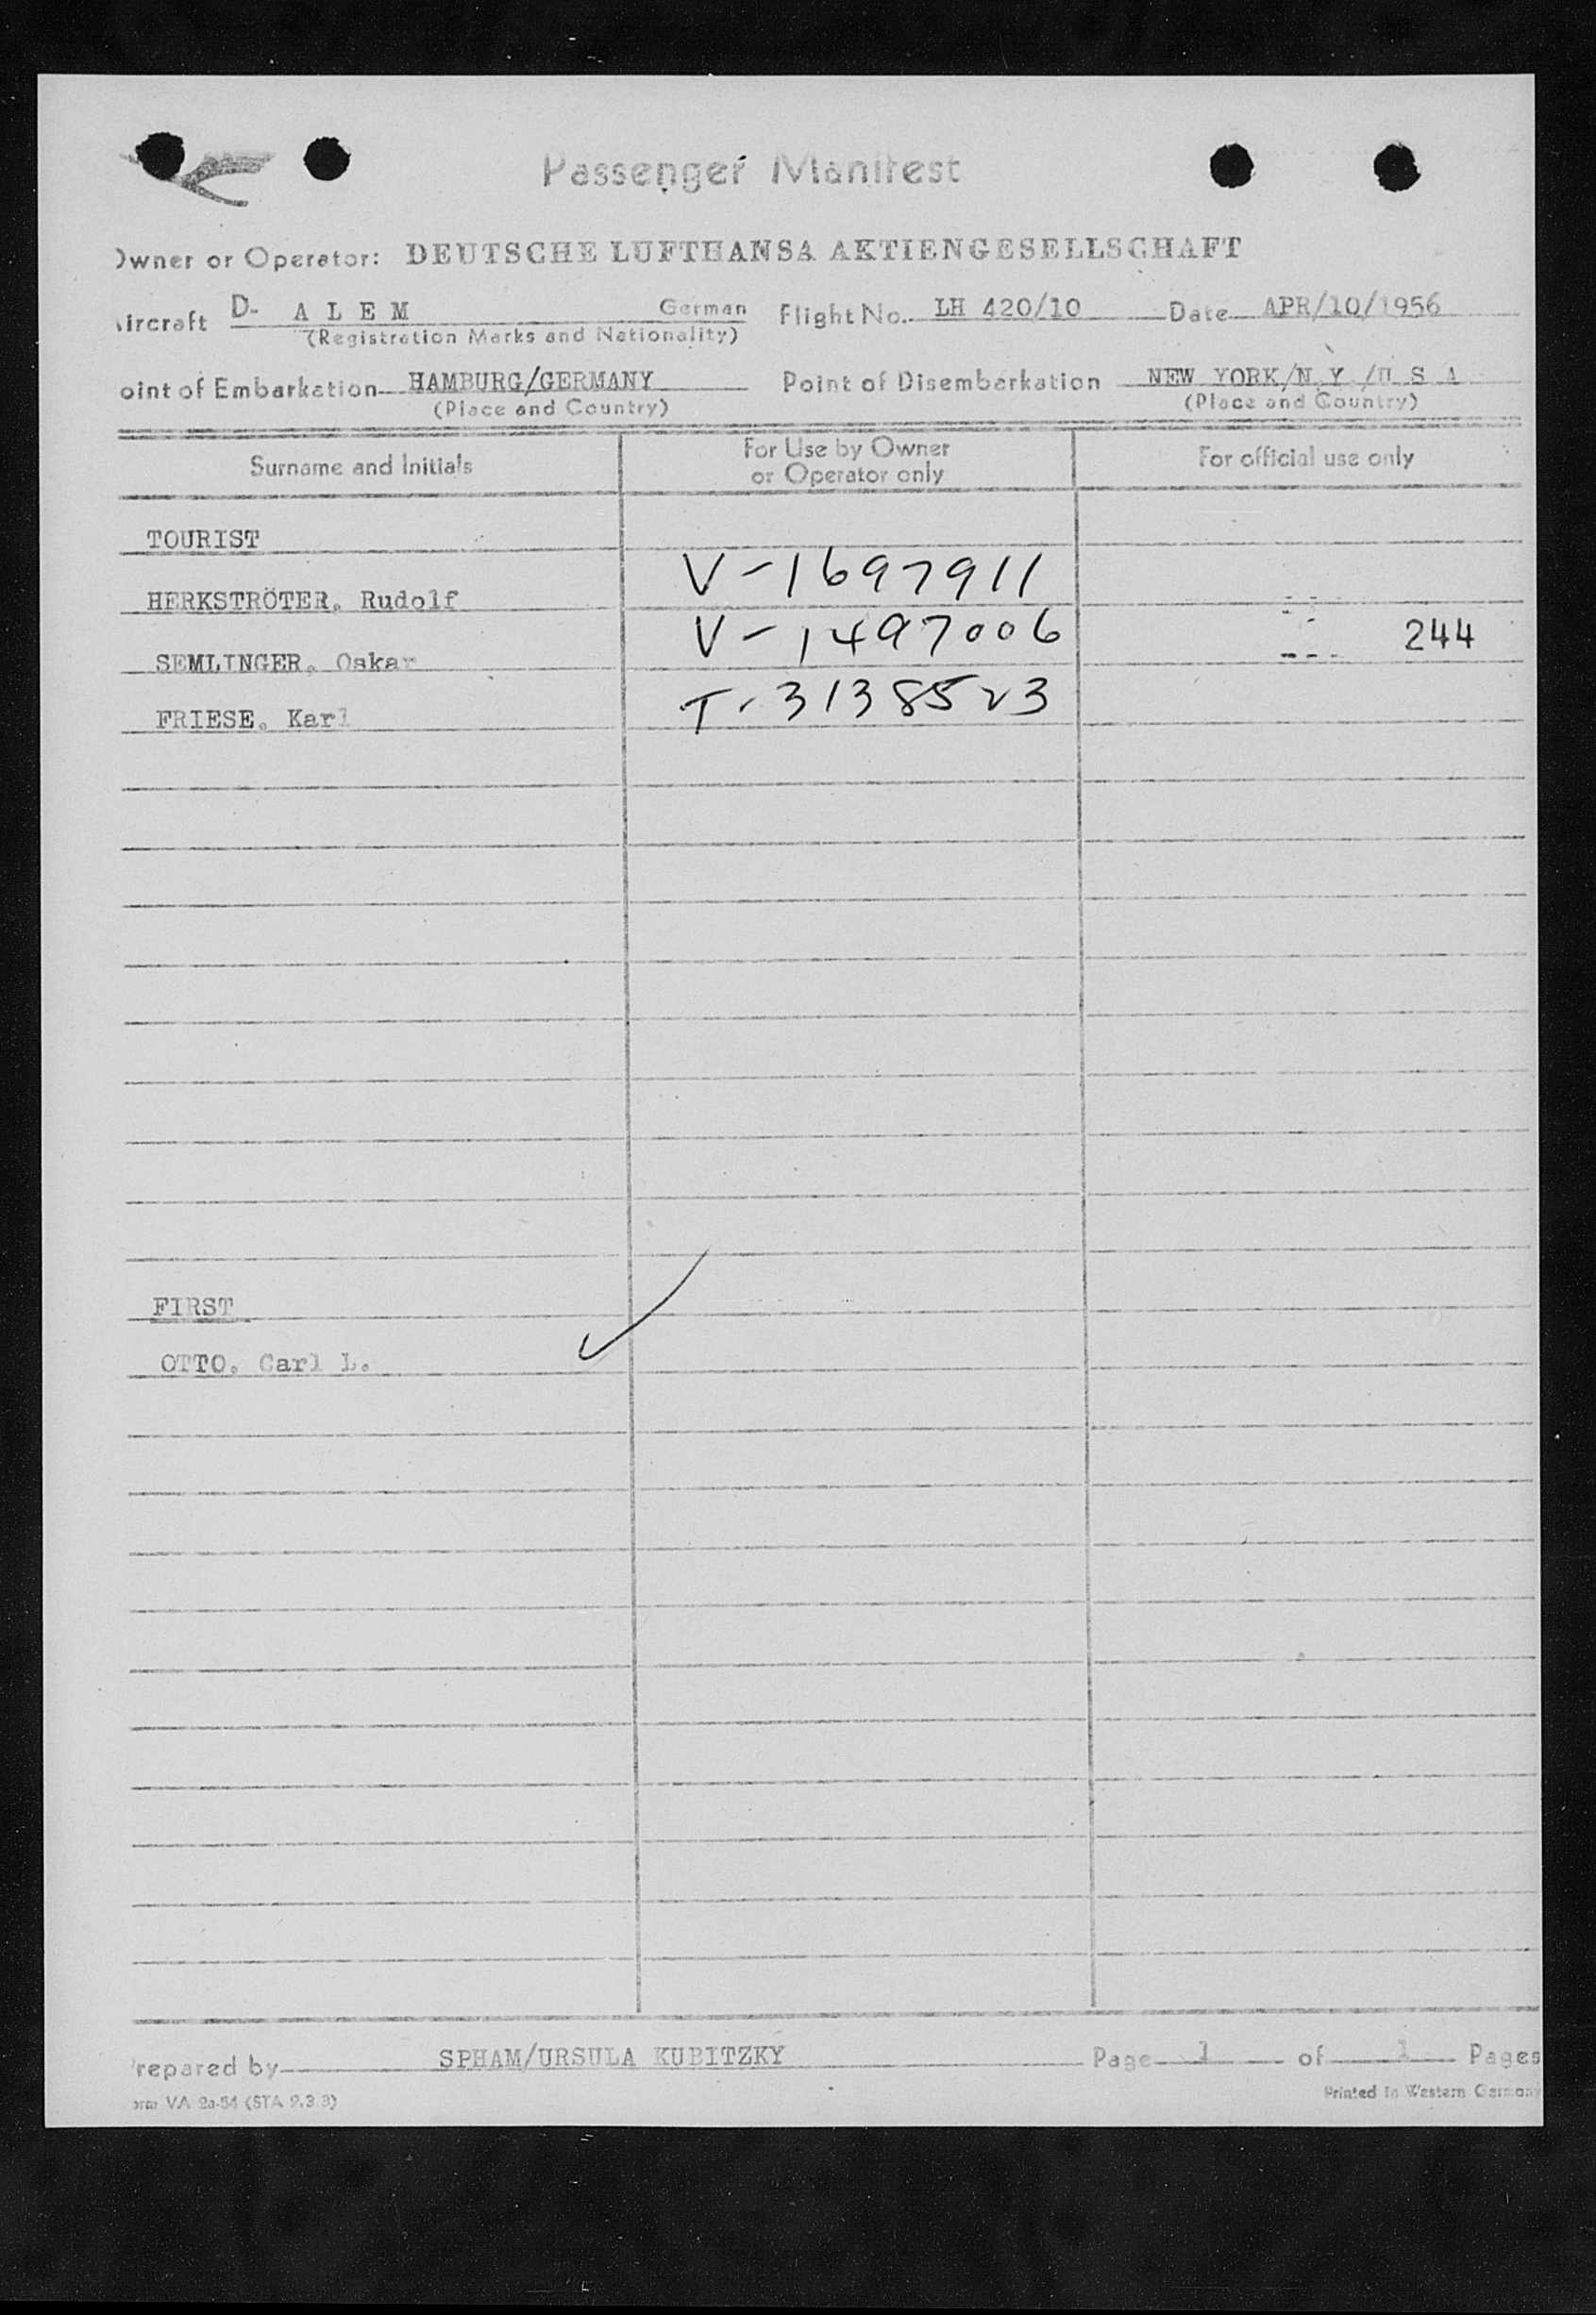 Passenger Manifest
Owner or Operator: DEUTSCHE LUFTHANSA AKTIENGESELLSCHAFT
Aircraft D- A L E M German Flight No. LH 420/10 Date APR/10/1956
(Registration Marks and Nationality)
oint of Embarkation HAMBURG/GERMANY Point of Disembarkation NEW YORK/N.Y./U S A
(Place and Country) (Place and Country)
Surname and Initials For Use by Owner or Operator only For official use only
TOURIST
HERKSTRÖTER, Rudolf V-1697911
SEMLINGER, Oskar V-1497006 244
FRIESE, Karl T-3138523
FIRST
OTTO, Carl L. ✓
repared by SPHAM/URSULA KUBITZKY Page 1 of 1 Pages
orm VA 2a-54 (STA 9.3.3) Printed in Western Germany